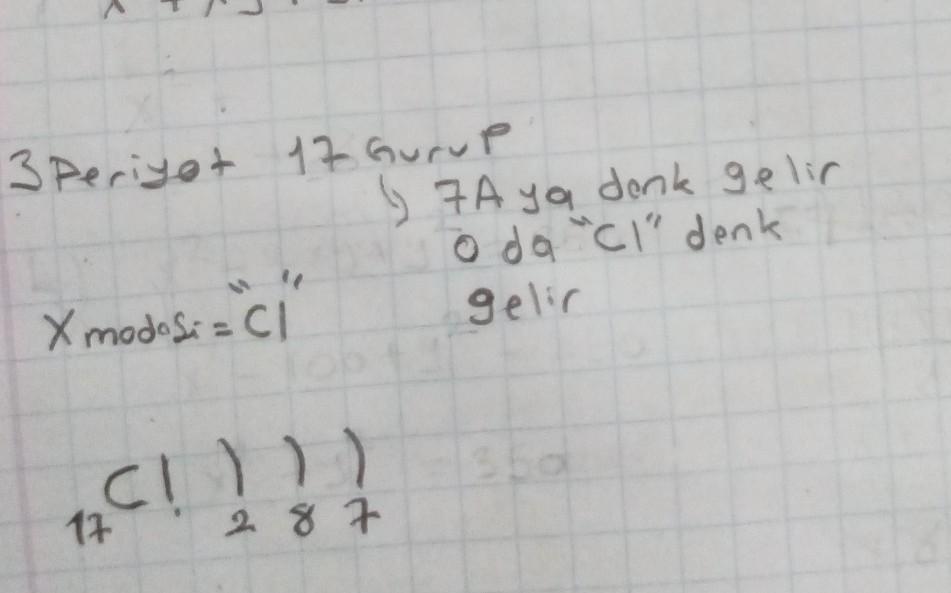 3 Periyot 17 Gurup
↳ 7A ya denk gelir
O da "Cl" denk
gelir
X madesi = "Cl"
17Cl ) ) )
2 8 7